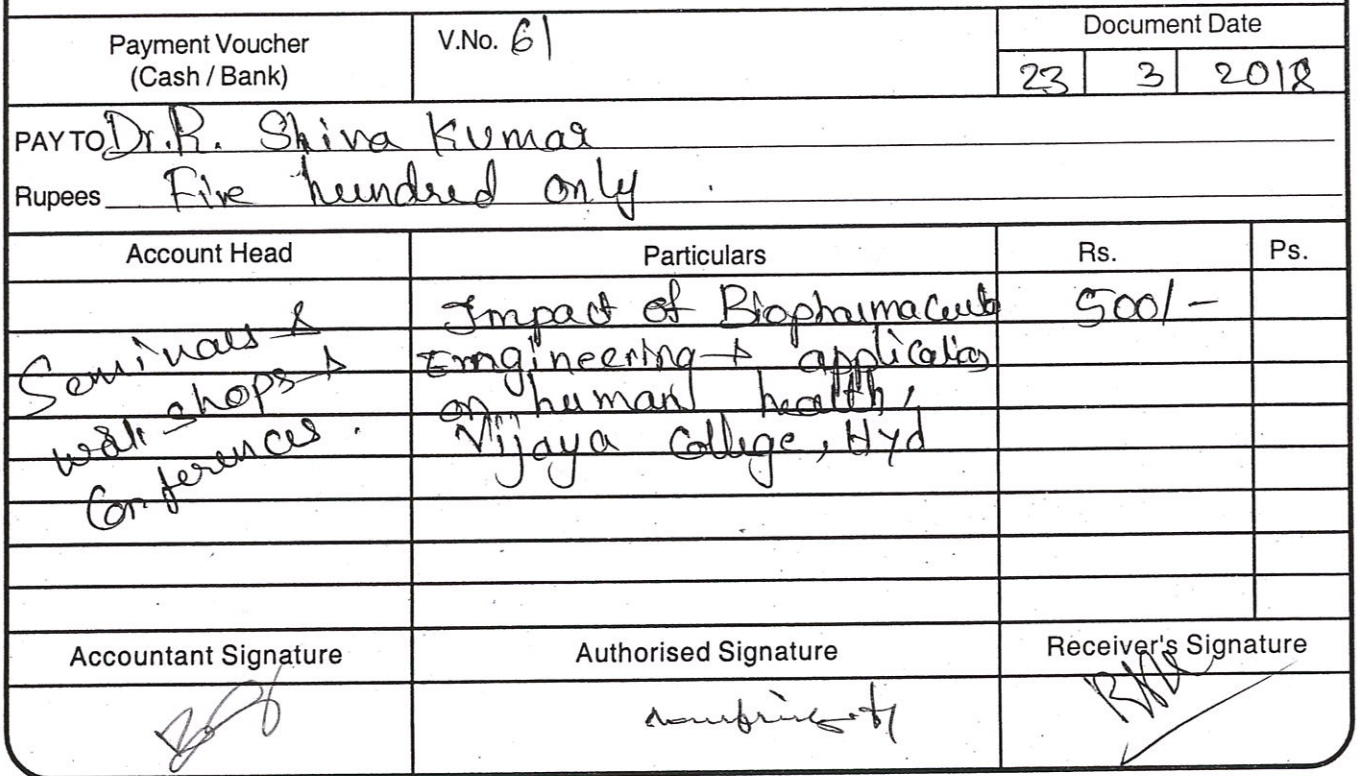 Payment Voucher
(Cash / Bank)
V.No. 61
Document Date
23 3 2018
PAY TO Dr. R. Shiva Kumar
Rupees Five hundred only.
Account Head
Particulars
Rs.
Ps.
Seminars &
work shops &
Conferences.
Impact of Biopharmaceuti
Emgineering & application
on human health,
Vijaya College, Hyd
500/-
Accountant Signature
Authorised Signature
Receiver's Signature